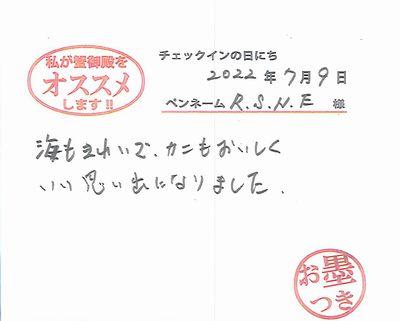 私が蟹御殿を
オススメ
します!!
チェックインの日にち
2022年7月9日
ペンネーム R.S.N.E 様
海もきれいで、カニもおいしく
いい思い出になりました。
お墨
つき